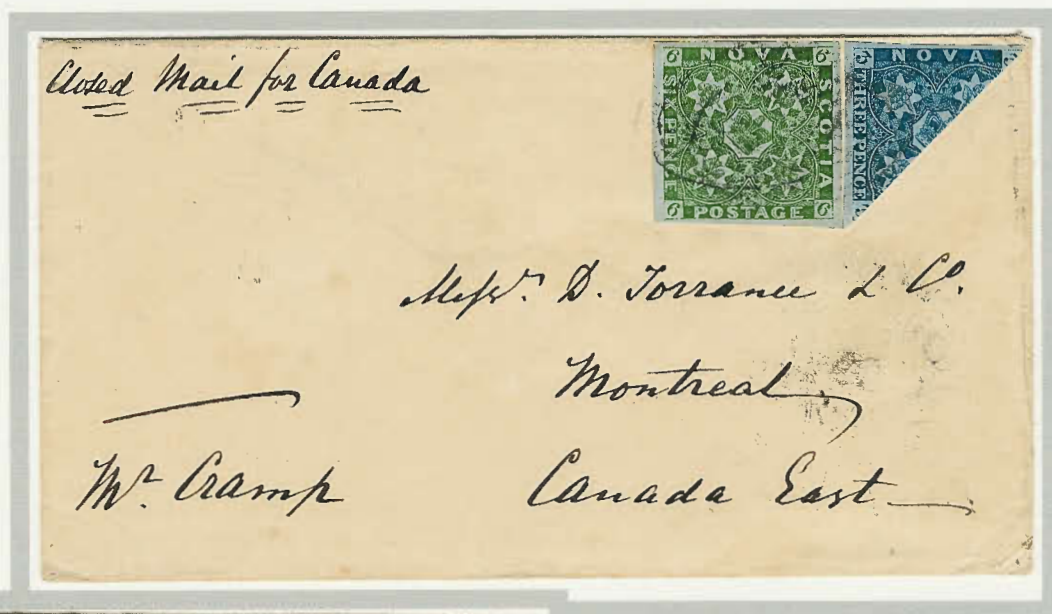 Closed Mail for Canada
6 NOVA 6
SCOTIA
PENCE
6 POSTAGE 6
NOVA
THREE PENCE
Messrs. D. Torrance & Co.
Montreal,
Mr. Cramp
Canada East